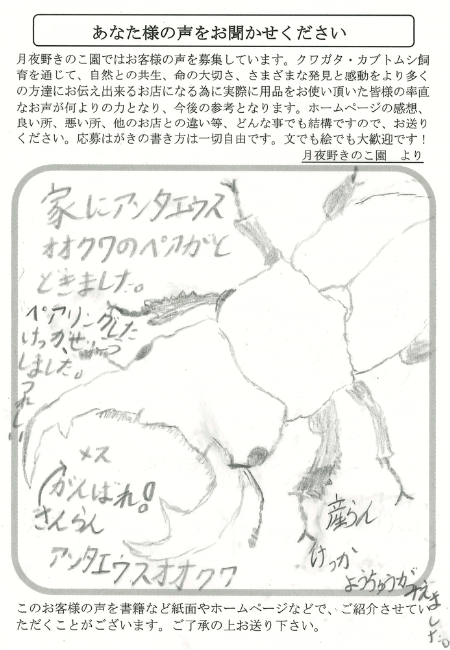 あなた様の声をお聞かせください
月夜野きのこ園ではお客様の声を募集しています。クワガタ・カブトムシ飼
育を通じて、自然との共生、命の大切さ、さまざまな発見と感動をより多く
の方達にお伝え出来るお店になる為に実際に用品をお使い頂いた皆様の率直
なお声が何よりの力となり、今後の参考となります。ホームページの感想、
良い所、悪い所、他のお店との違い等、どんな事でも結構ですので、お送り
ください。応募はがきの書き方は一切自由です。文でも絵でも大歓迎です！
月夜野きのこ園　より
家にアンタエウス
オオクワのペアがと
どきました。
ペアリングした
けっか、せいこう
しました。うれしい
メス
がんばれ！
さんらん
アンタエウスオオクワ
産らん
けっか
ようちゅうがみえました。
このお客様の声を書籍など紙面やホームページなどで、ご紹介させてい
ただくことがございます。ご了承の上お送り下さい。